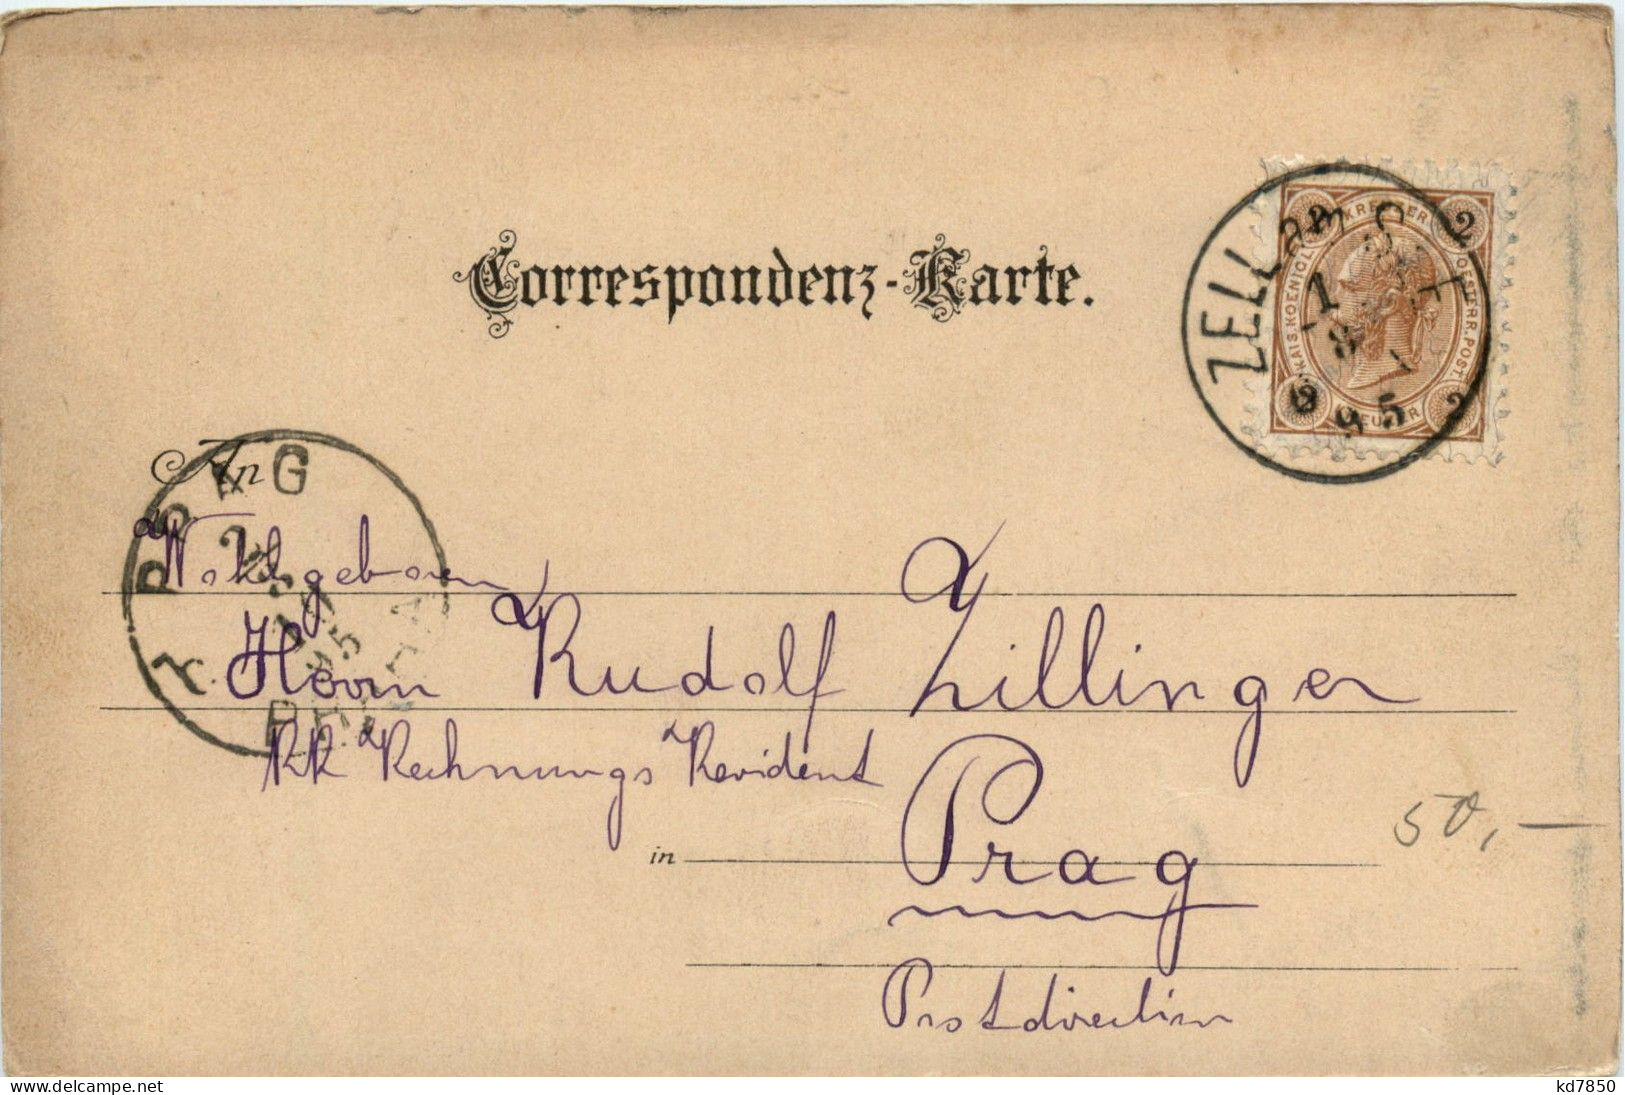 Correspondenz-Karte.
ZELL am S
1
8
95
2 KREUZER 2
KAIS. KOENIGL. OESTERR. POST.
2 KREUZER 2
An
PRAG
Wohlgeboren
Herrn Rudolf Zillinger
KK Rechnungs Revident
in Prag
Postdirection
50,—
www.delcampe.net
kd7850